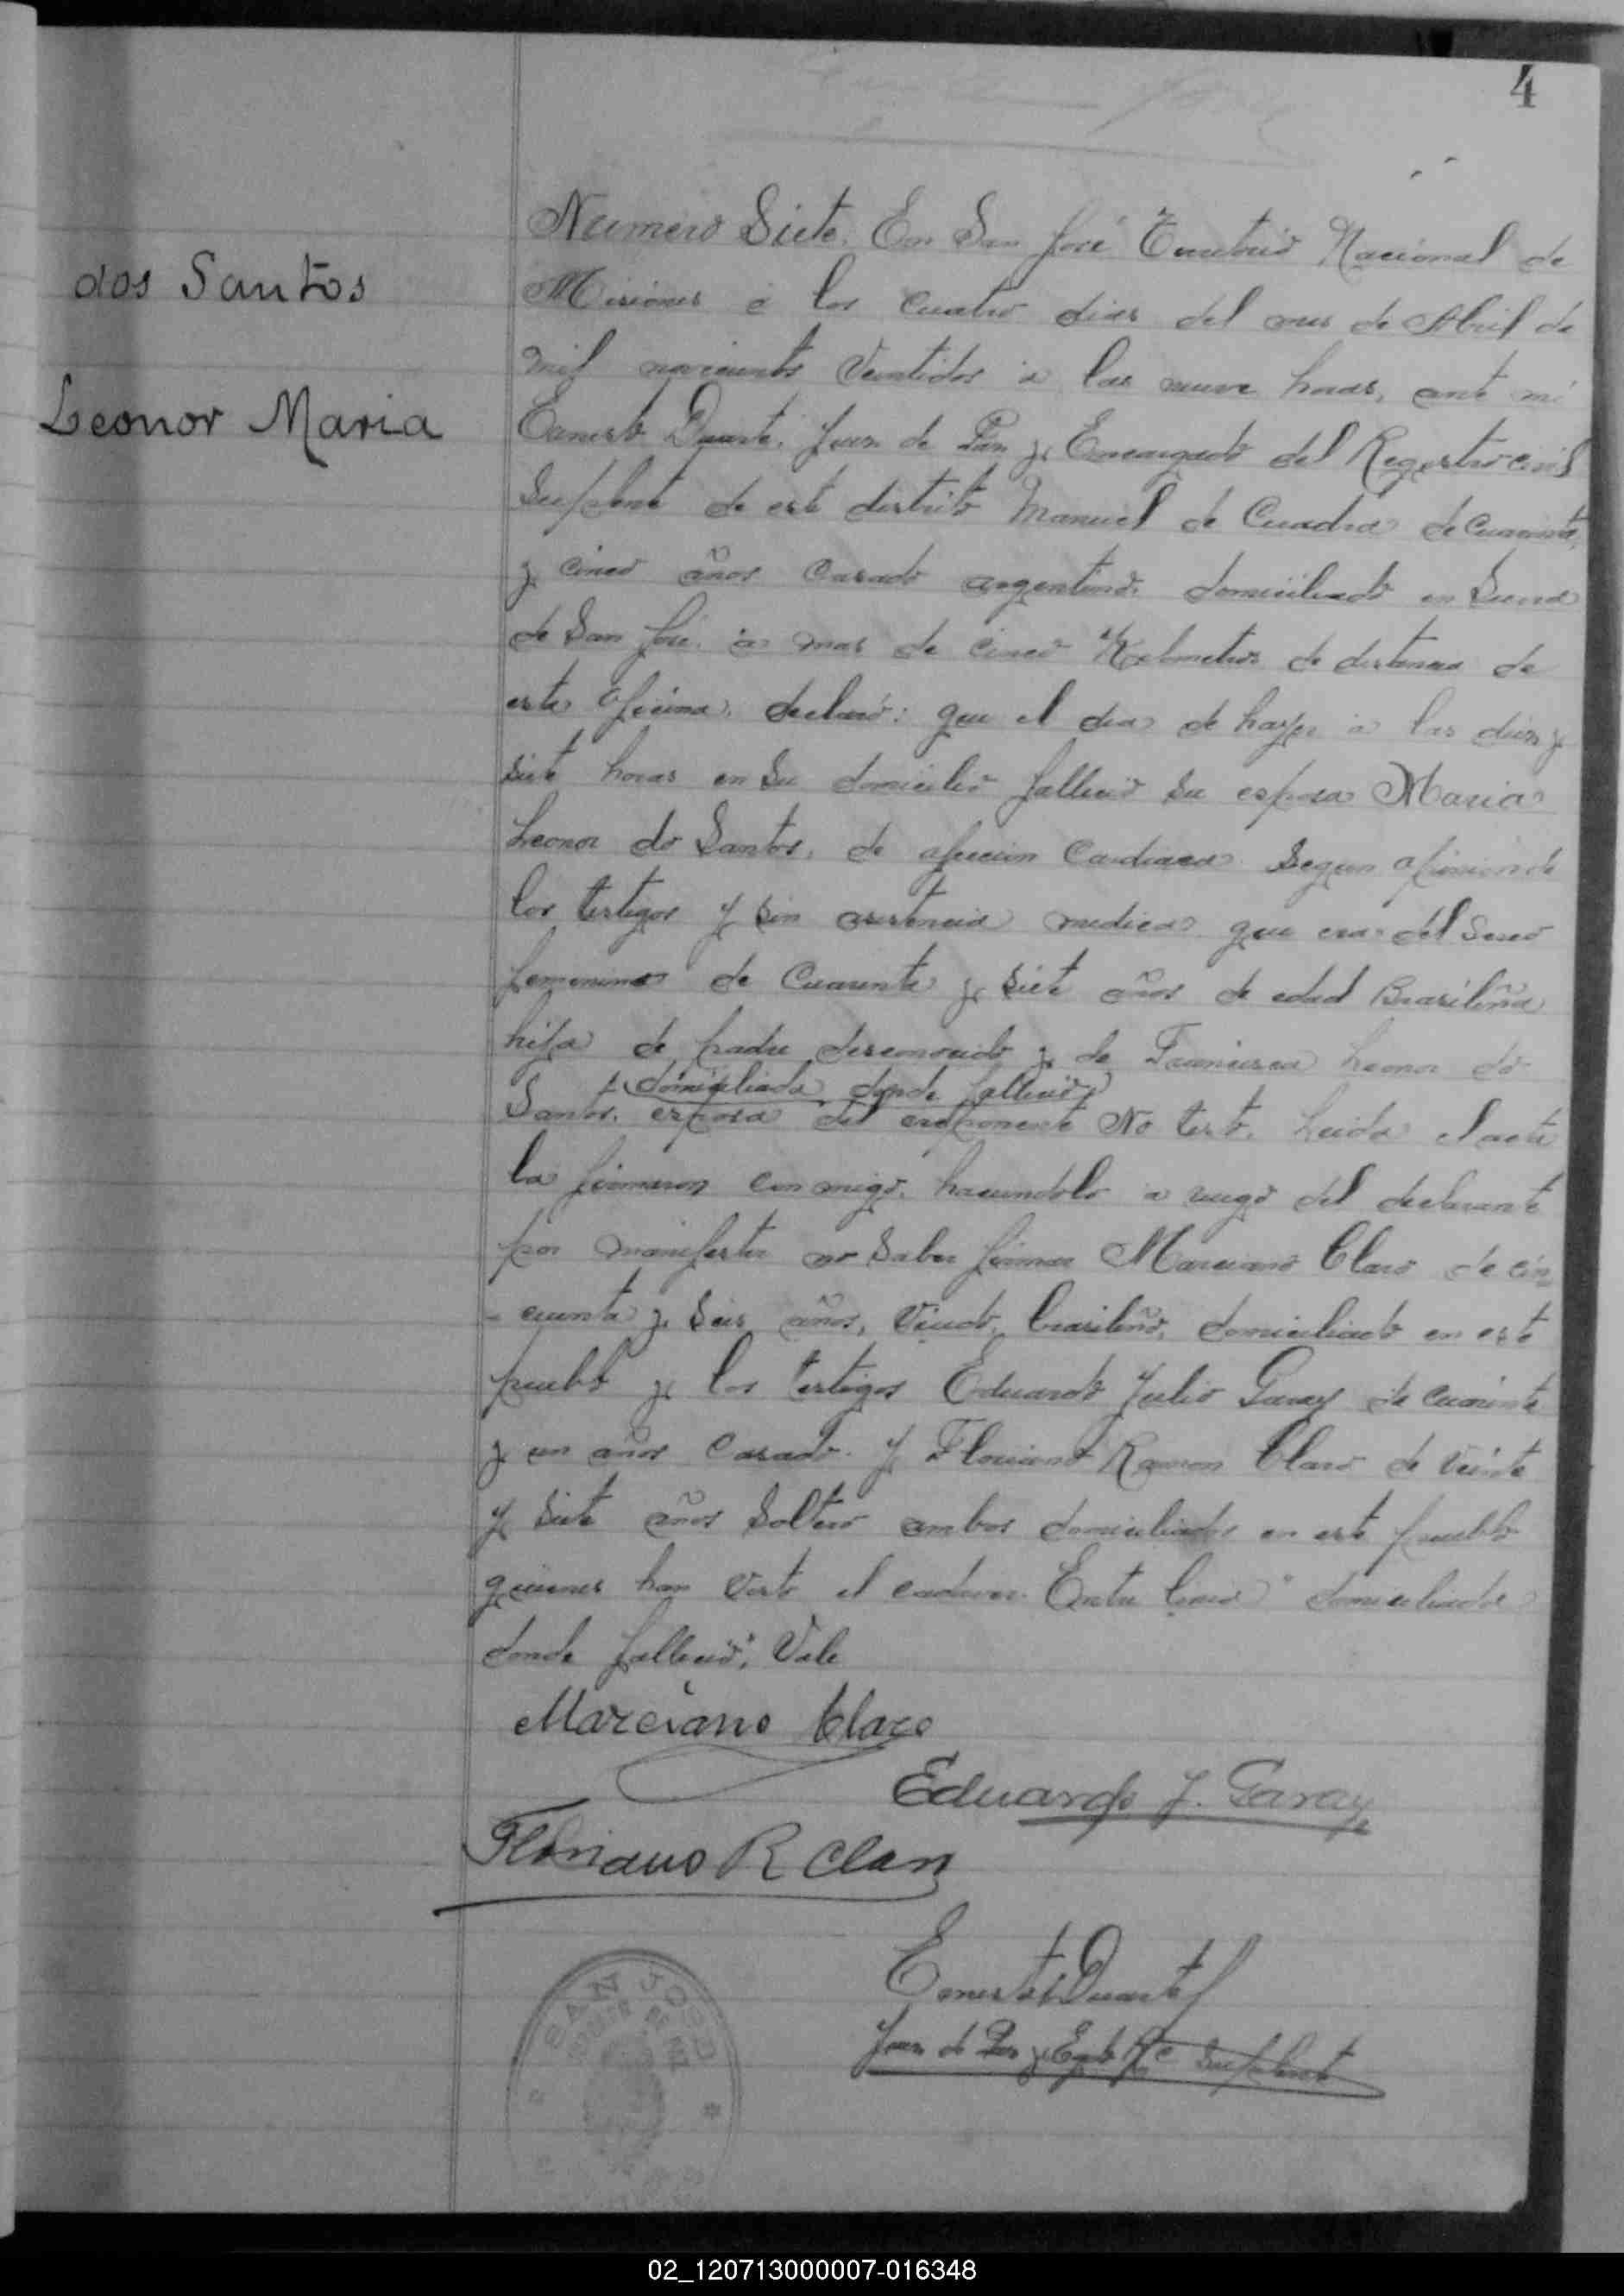 4
dos Santos
Leonor Maria
Numero Siete. En San José Territorio Nacional de
Misiones á los cuatro dias del mes de Abril de
mil novecientos veintidos a las nueve horas, ante mi
Ernesto Duarte. Juez de Paz y Encargado del Registro Civil
Suplente de este distrito Manuel de Cuadra de Cuarenta
y cinco años Casado argentino. domiciliado en Sierra
de San José. a mas de cinco Kilometros de distancia de
esta oficina. declaró: que el dia de hayer a las diez y
siete horas en su domicilio fallecio su esposa Maria
Leonor do Santos, de afeccion Cardiaca Segun opinion de
los testigos y sin asistencia medica que era del sexo
femenino de Cuarenta y siete años de edad Brasileña
hija de padre desconocido y de Francisca Leonor do
domiciliada donde fallecio
Santos. esposa del exponente No testo. Leida el acta
la firmaron con migo. haciendolo a ruego del declarante
por manifestar no saber firmar Marciano Claro de cin
- cuenta y seis años, Viudo, brasileño, domiciliado en este
pueblo y los testigos Eduardo Julio Garay de cuarenta
y un años Casado. y Floriano Ramon Claro de veinte
y siete años Soltero ambos domiciliados en este pueblo
quienes han visto el cadaver. Entre linea "domiciliada
donde fallecio", Vale
Marciano Claro
Eduardo J. Garay
Floriano R Claro
Ernesto Duarte
Juez de Paz y Egdo R. C. Suplente
SAN JOSE
02_120713000007-016348